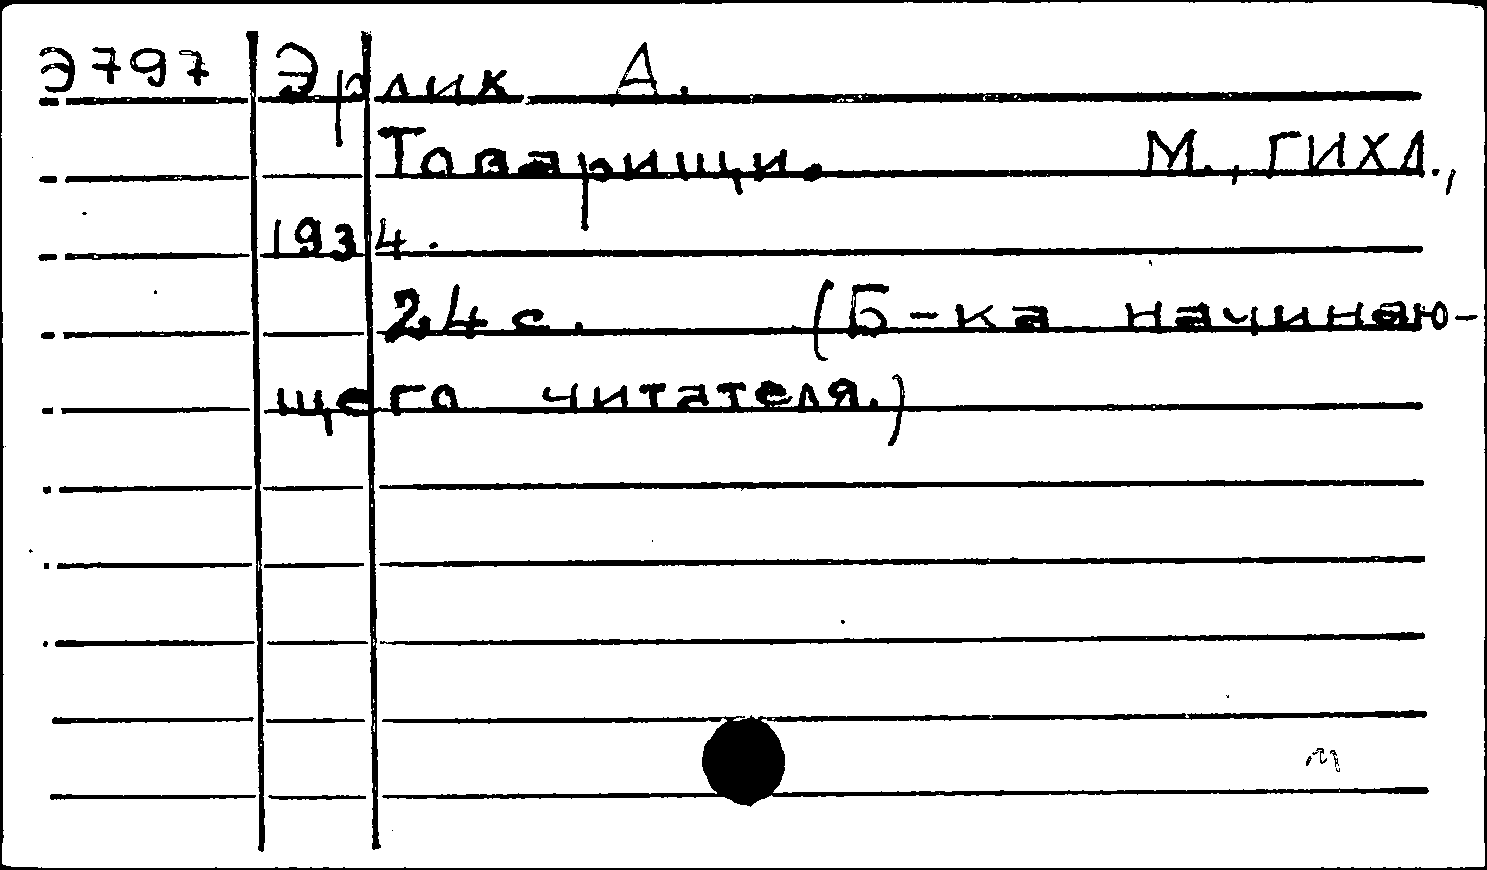 Э797 Эрлих А.
Товарищи. М., ГИХЛ.,
1934.
24 с. (Б-ка начинаю-
щего читателя.)